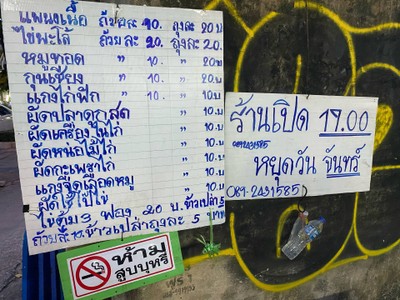 แพนงเนื้อ ถ้วยละ 10. ถุงละ 20 บ
ไข่พะโล้ ถ้วยละ 20. ถุงละ 20.
หมูทอด " 10. " 20 บ
กุนเชียง " 10. " 20 บ
แกงไก่ฟัก " 10. " 10. บ
ผัดปลาดุกสด " 10 บ
ผัดเครื่องในไก่ " 10 บ
ผัดหน่อไม้ไก่ " 10 บ
ผัดกะเพราไก่ " 10 บ
แกงจืดเลือดหมู " 10 บ
" 10 บ
ไข่ต้ม 3 ฟอง, 20 บ. ข้าวเปล่า 5
ถ้วยละ 10. ข้าวเปล่าถุงละ 5 บาท
ร้านเปิด 17.00
0892431585
หยุดวัน จันทร์
089-2431585
ห้าม
สูบบุหรี่